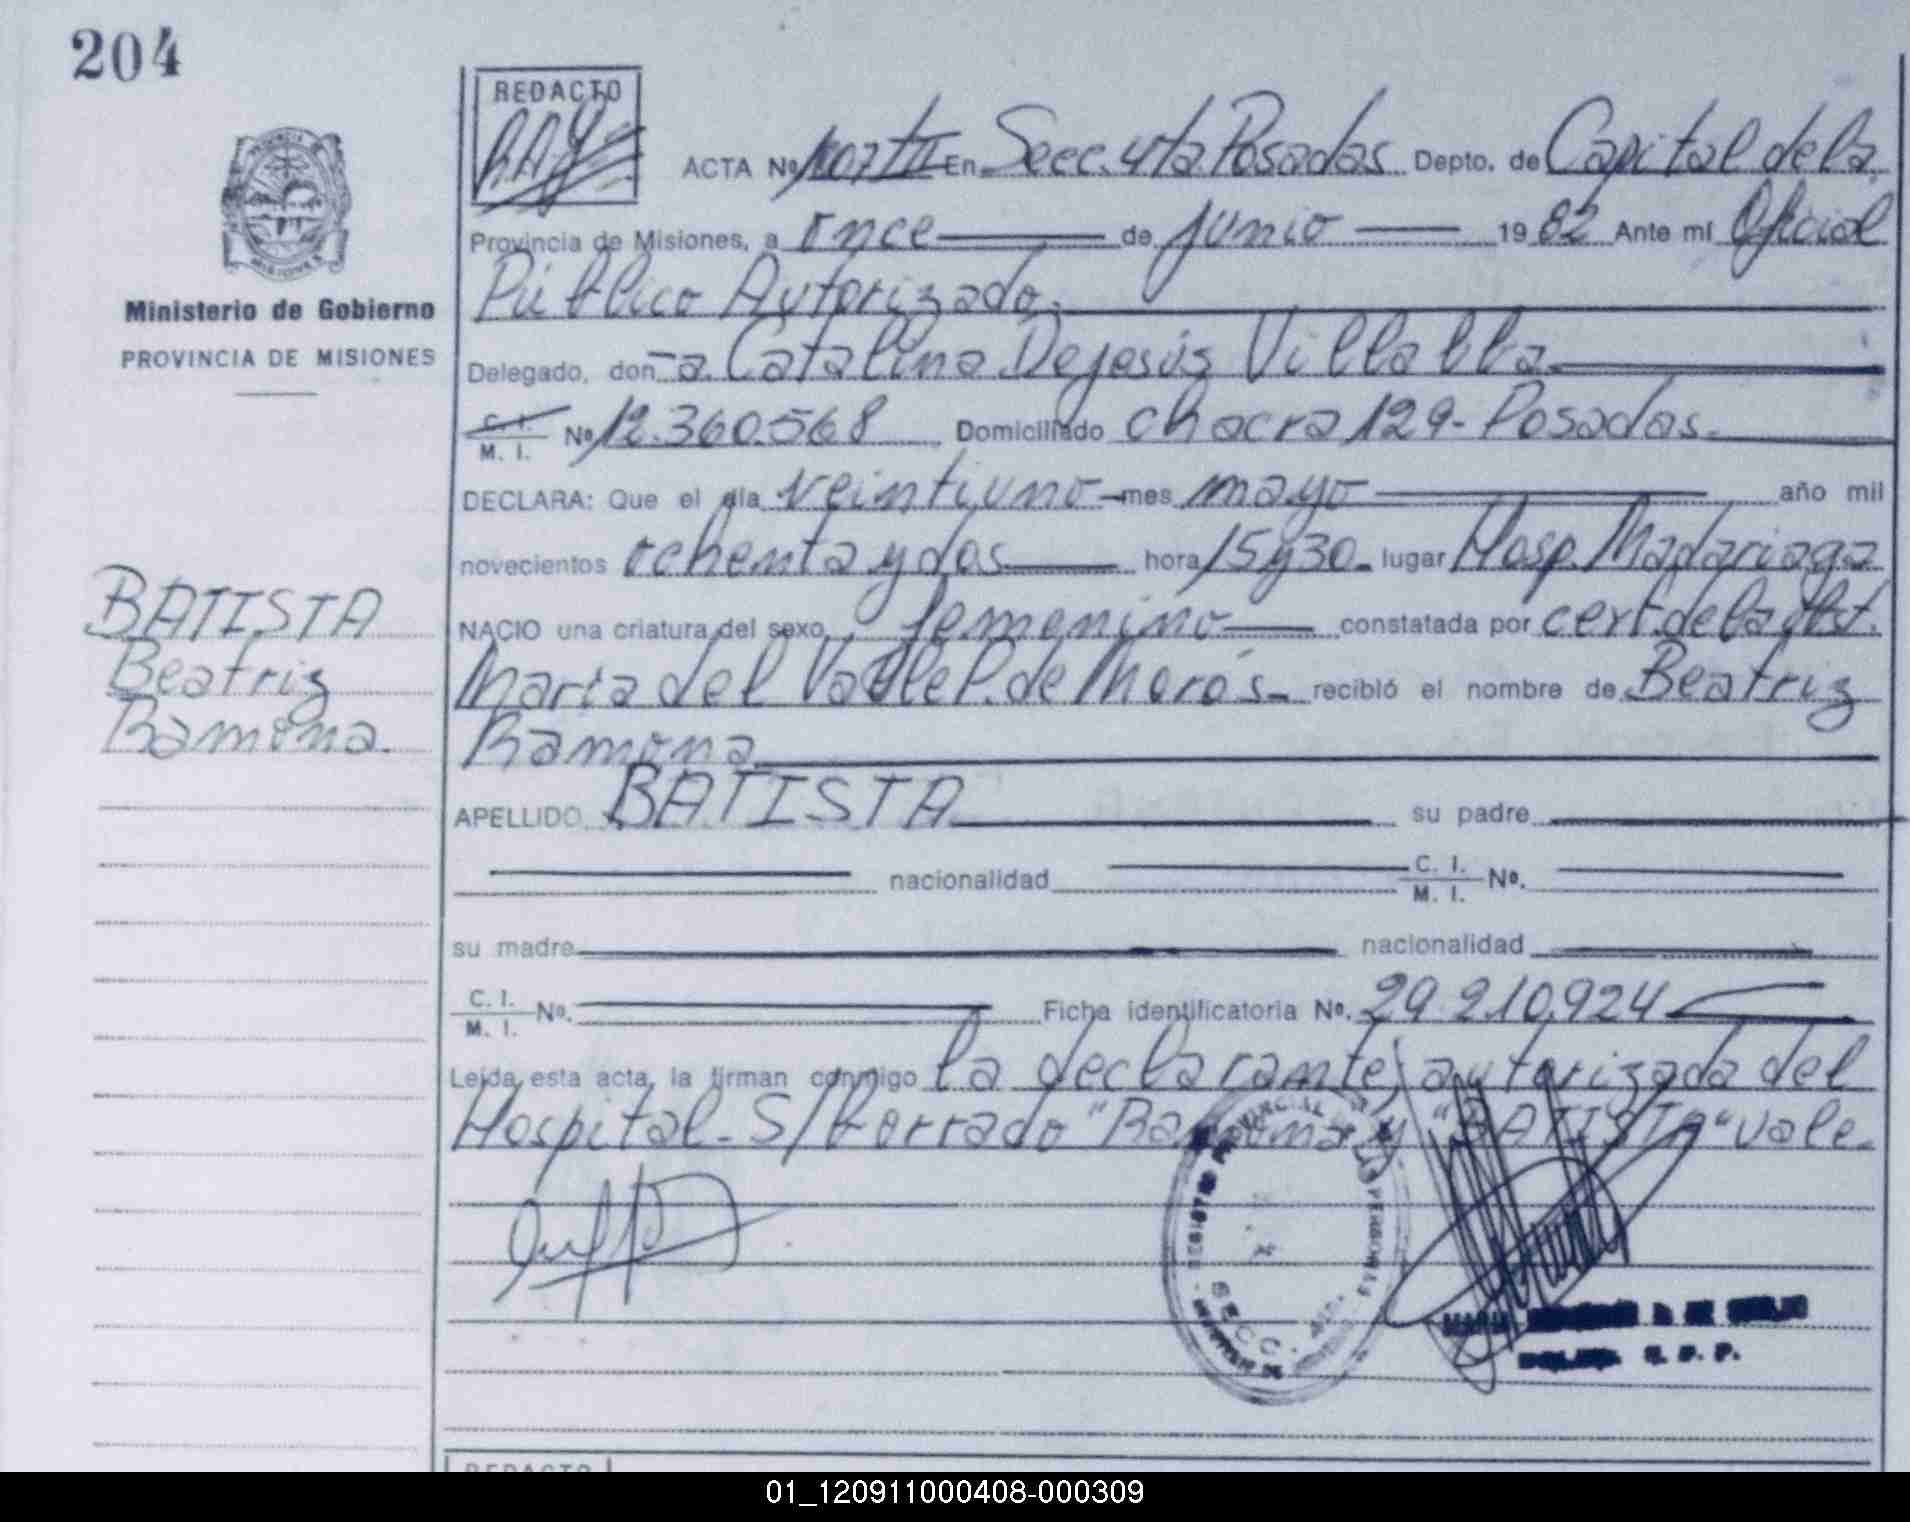 204
REDACTO
ACTA Nº 1007 tII En Secc. 4ta. Posadas Depto. de Capital de la
Provincia de Misiones, a once de junio 1982 Ante mí Oficial
Público Autorizado.
Ministerio de Gobierno
PROVINCIA DE MISIONES
Delegado, don -a. Catalina Dejesús Villalba
C. I.
M. I. Nº 12.360.568 Domiciliado chacra 129- Posadas.
DECLARA: Que el día veintiuno mes mayo año mil
novecientos ochenta y dos hora 15y30. lugar Hosp. Madariaga
BATISTA
Beatriz
Ramona.
NACIO una criatura del sexo femenino constatada por cert. de la Obst.
María del Valle P. de Morós recibió el nombre de Beatriz
Ramona
APELLIDO BATISTA su padre
nacionalidad C. I.
M. I. Nº.
su madre nacionalidad
C. I.
M. I. Nº. Ficha identificatoria Nº. 29.210.924
Leída esta acta, la firman conmigo la declarante, autorizada del
Hospital. S/borrado "Ramona" y "BATISTA" vale.
REGISTRO PROVINCIAL DE LAS PERSONAS
SECC.
REDACTO
01_120911000408-000309